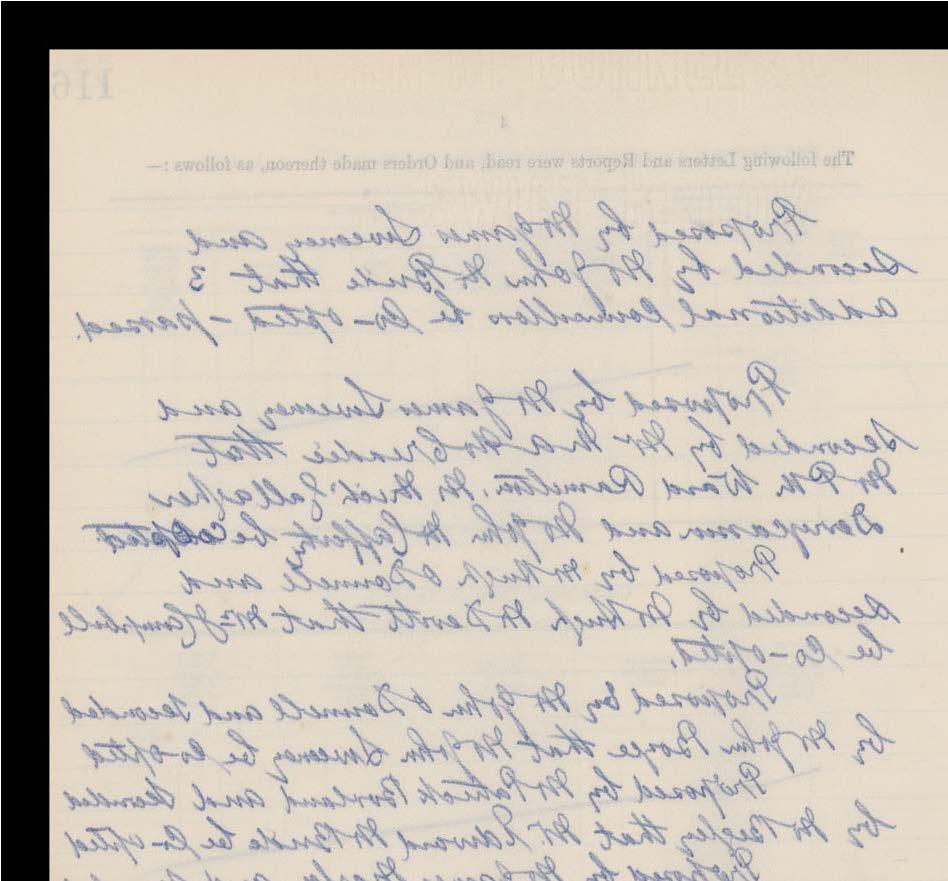 116
4
The following Letters and Reports were read, and Orders made thereon, as follows :—
Proposed by Mr James Sweeney and
seconded by Mr John McBride that 3
additional Councillors be Co-opted - passed.
Proposed by Mr James Sweeney and
seconded by Mr that
Mr P. Ward Ramelton, Mr Gallagher
and Mr John McCafferty be Coopted
Proposed by Mr Hugh O Donnell and
seconded by Mr Hugh McDevitt that Mr J Campbell
be Co-opted.
Proposed by Mr John O Donnell and seconded
by Mr John Boyce that Mr John Sweeney be Co-opted
Proposed by Mr Patrick and seconded
by Mr that Mr Edward McBride be Co-opted
Proposed by Mr James and